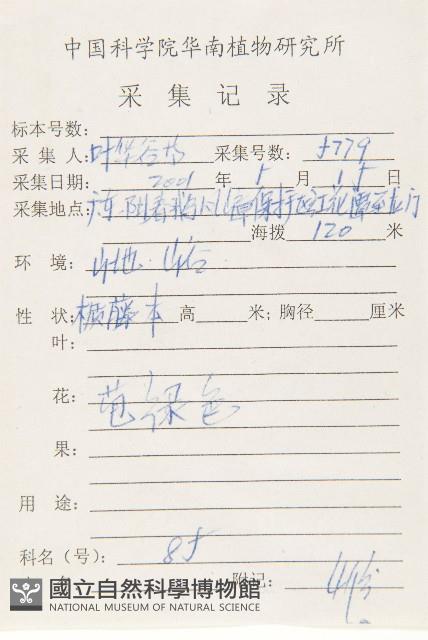 中国科学院华南植物研究所
采集记录
标本号数:
采集人: 叶华谷 采集号数: 5779
采集日期: 2001 年 5 月 15 日
采集地点: 广东 阳春 鹅凰嶂保护区红花潭
海拨 120 米
环 境: 山地
性 状: 木 高 米; 胸径 厘米
叶:
花: 绿色
果:
用 途:
科名(号): 85
附记:
國立自然科學博物館
NATIONAL MUSEUM OF NATURAL SCIENCE